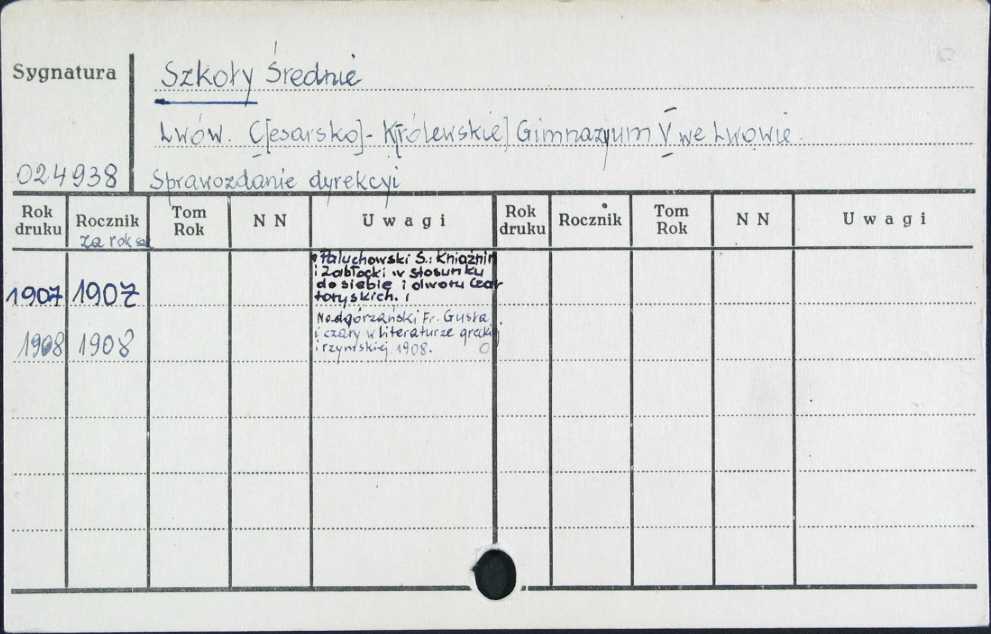 Sygnatura
Szkoły Średnie
Lwów. C[esarsko]-K[rólewskie] Gimnazyum V we Lwowie.
024938
Sprawozdanie dyrekcyi
Rok druku Rocznik Tom Rok N N Uwagi Rok druku Rocznik Tom Rok N N Uwagi
za rok
1907 1907
Paluchowski S.: Kniaźnin
i Zabłocki w stosunku
do siebie i dworu Czar
toryskich.
1908 1908
Nadgórzański Fr. Gusła
i czary w literaturze greckiej
i rzymskiej 1908.